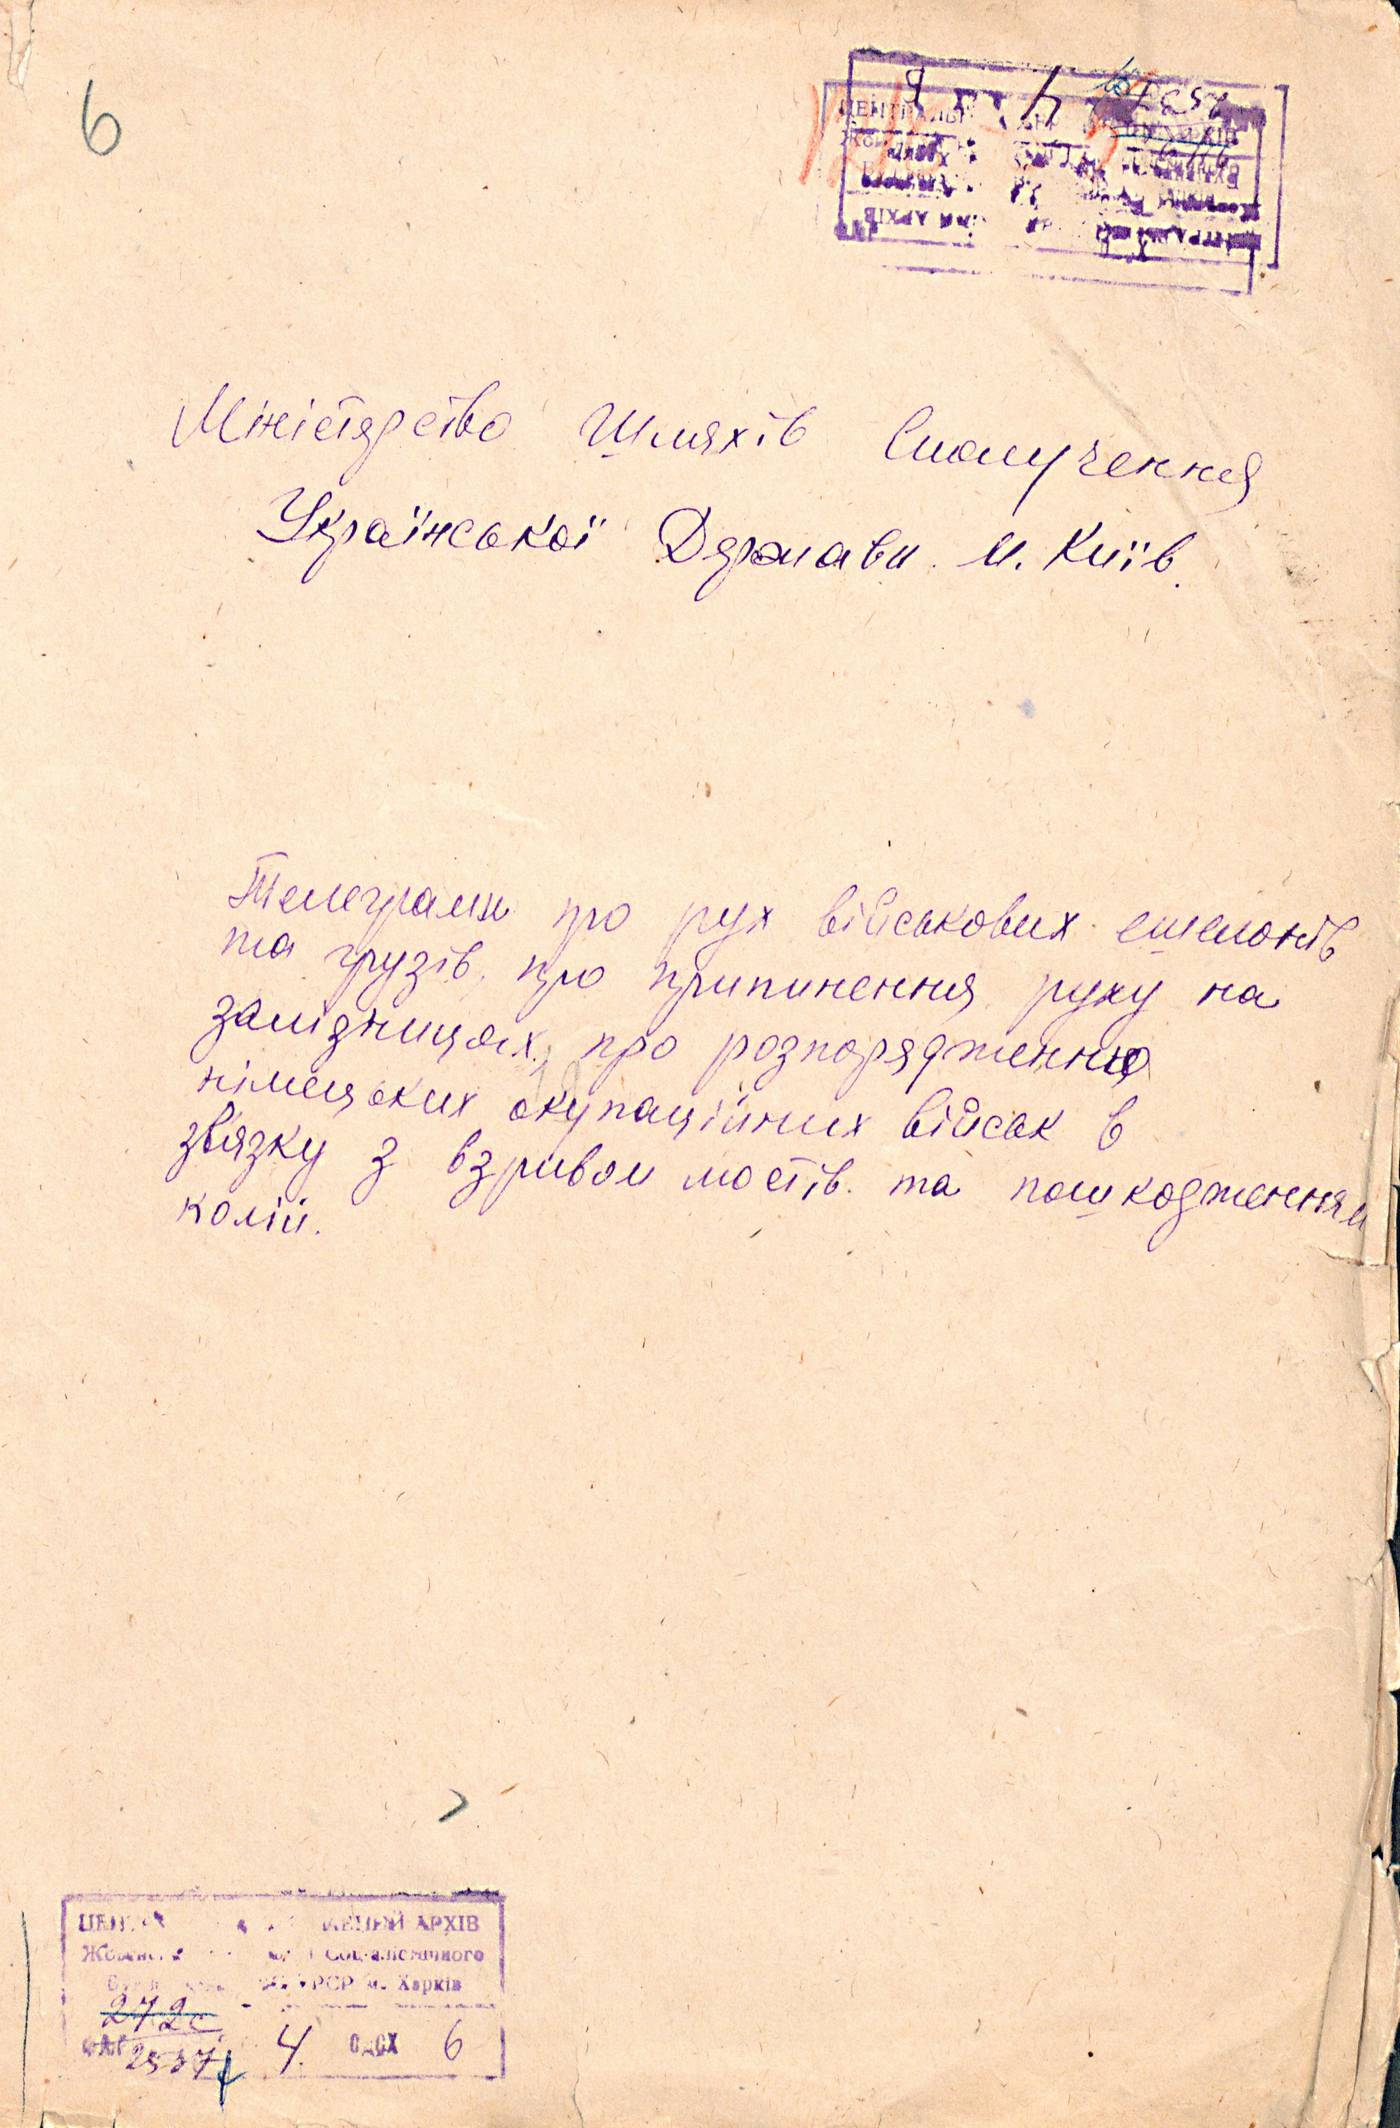 6
Міністерство Шляхів Сполучення
Української Держави м. Київ.
Телеграми про рух військових ешелонів
та грузів, про припинення руху на
залізницях, про розпорядження
німецьких окупаційних військ в
звязку з взривом мостів та пошкодженням
колій.
АРХІВ
Соціалістичного
УРСР м. Харків
272с
2537 4. ОДСХ 6